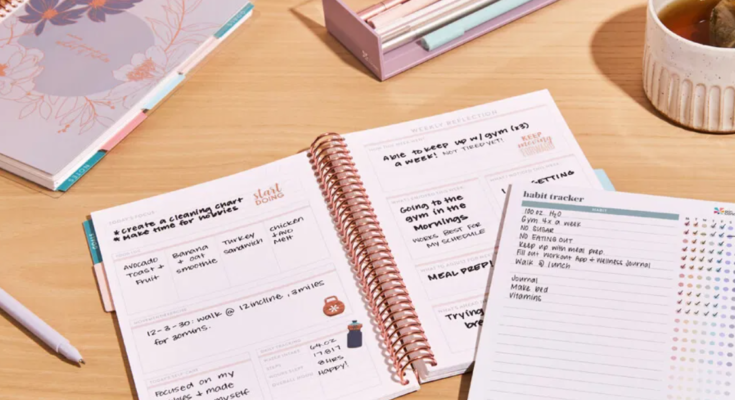 start
DOING
*Create a cleaning chart
*Make time for hobbies
Avocado
Toast +
Fruit
Banana
+ oat
smoothie
Turkey
sandwich
chicken
+ avo
melt
12-3-30: walk @ 12 incline, 3 miles
for 30mins.
64 oz
8 HRS
HAPPY!
Focused on my
+ made
myself
WEEKLY REFLECTION
Able to keep up w/ gym (x3)
a week! NOT TIRED YET!
KEEP
moving
Going to the
gym in the
Mornings
WORKS BEST FOR
MY SCHEDULE
SETTING
MEAL PREP
Trying
habit tracker
HABIT
100 oz. H2O
Gym 4x a week
NO SUGAR
NO EATING OUT
Keep up with meal prep
Fill out Workout App + Wellness Journal
Walk @ lunch
Journal
Make bed
Vitamins
NOTES